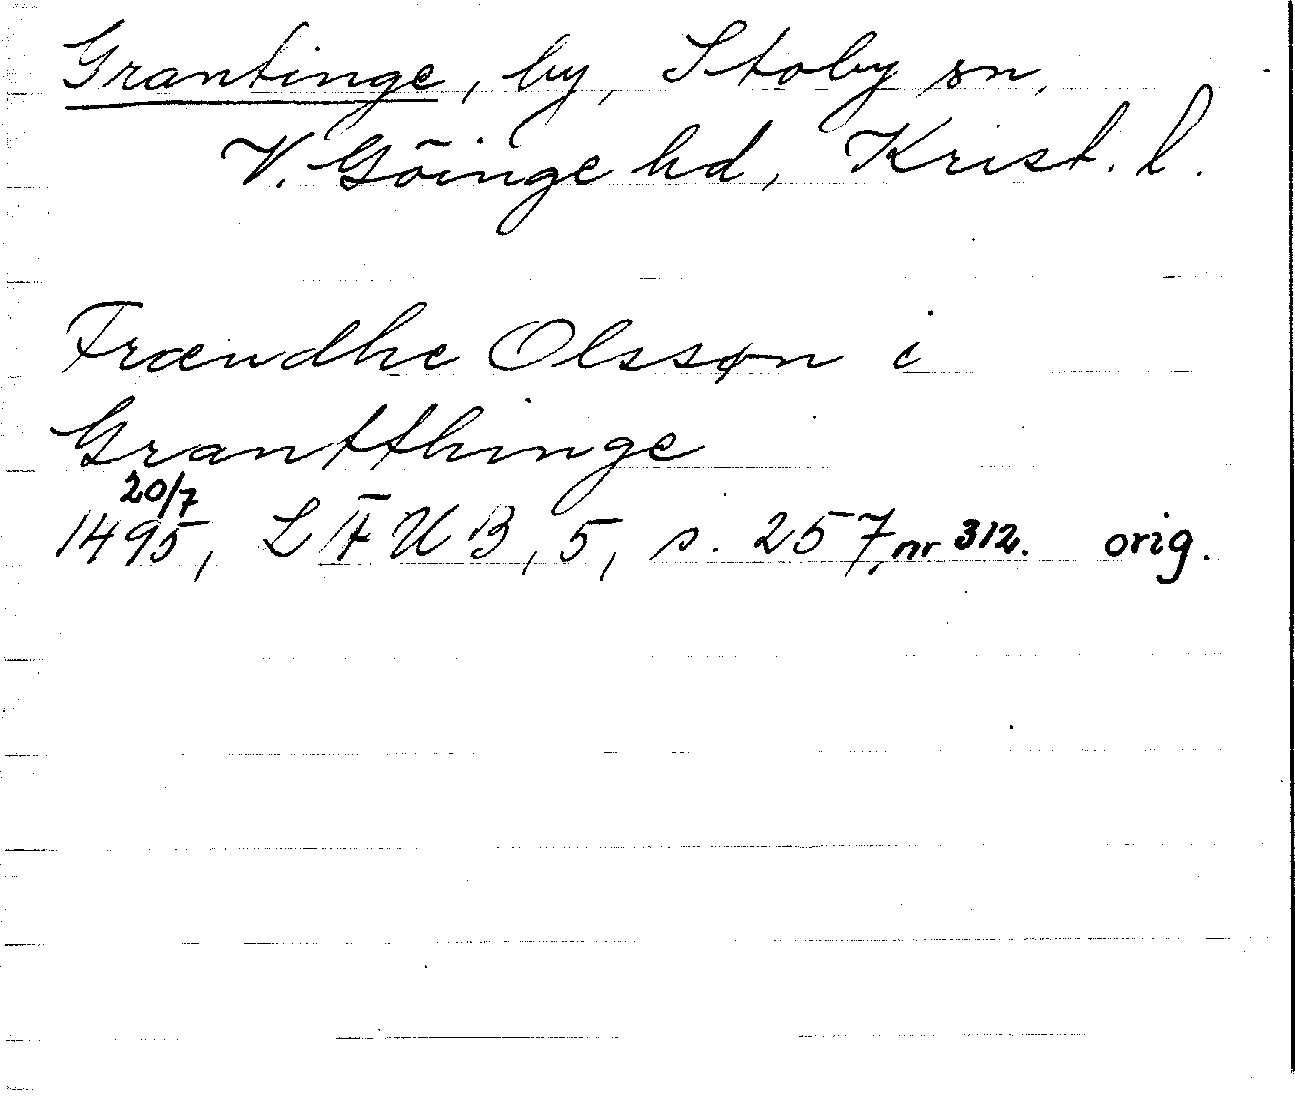 Grantinge, by, Stoby sn,
V. Göinge hd, Krist. l.
Frændhe Olssøn i
Grantthinge
20/7
1495, LÆUB, 5, s. 257, nr 312. orig.